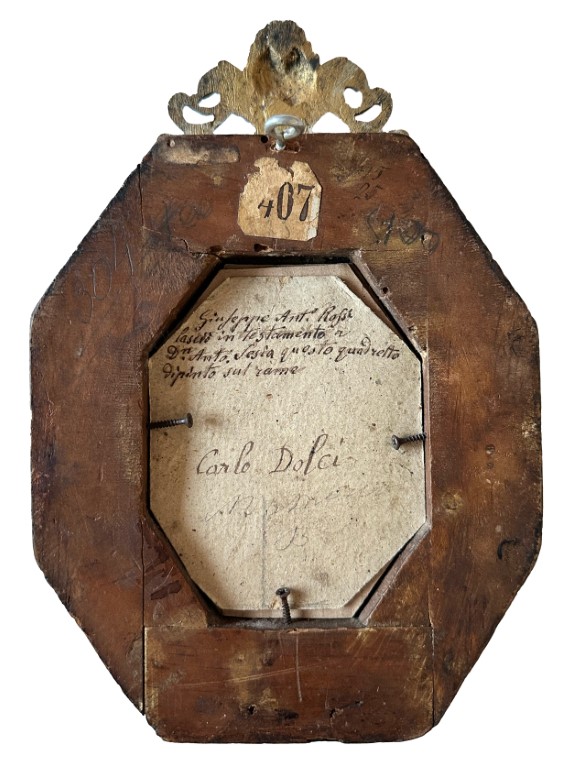 407
Giuseppe Ant.º Rossi
lasciò in testamento a
Dn. Anto. Sesia questo quadretto
dipinto sul rame
Carlo Dolci